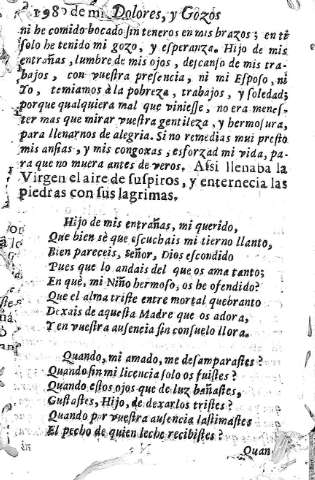 198 de mi Dolores, y Gozos
ni he comido bocado sin teneros en mis brazos; en tì
solo he tenido mi gozo, y esperança. Hijo de mis
entrañas, lumbre de mis ojos, descanso de mis tra-
bajos, con vuestra presencia, ni mi Esposo, ni
Yo, temiamos à la pobreza, trabajos, y soledad;
porque qualquiera mal que viniesse, no era menes-
ter mas que mirar vuestra gentileza, y hermosura,
para llenarnos de alegria. Si no remedias mui presto
mis ansias, y mis congoxas, esforzad mi vida, pa-
ra que no muera antes de veros. Assi llenaba la
Virgen el aire de suspiros, y enternecia las
piedras con sus lagrimas.
Hijo de mis entrañas, mi querido,
Que bien sè que escuchais mi tierno llanto,
Bien pareceis, Señor, Dios escondido
Pues que lo andais del que os ama tanto;
En què, mi Niño hermoso, os he ofendido?
Que el alma triste entre mortal quebranto
Dexais de aquesta Madre que os adora,
Y en vuestra ausencia sin consuelo llora.
Quando, mi amado, me desamparastes?
Quando sin mi licencia solo os fuistes?
Quando estos ojos que de luz bañastes,
Gustastes, Hijo, de dexarlos tristes?
Quando por vuestra ausencia lastimastes
El pecho de quien leche recibistes?
Quan